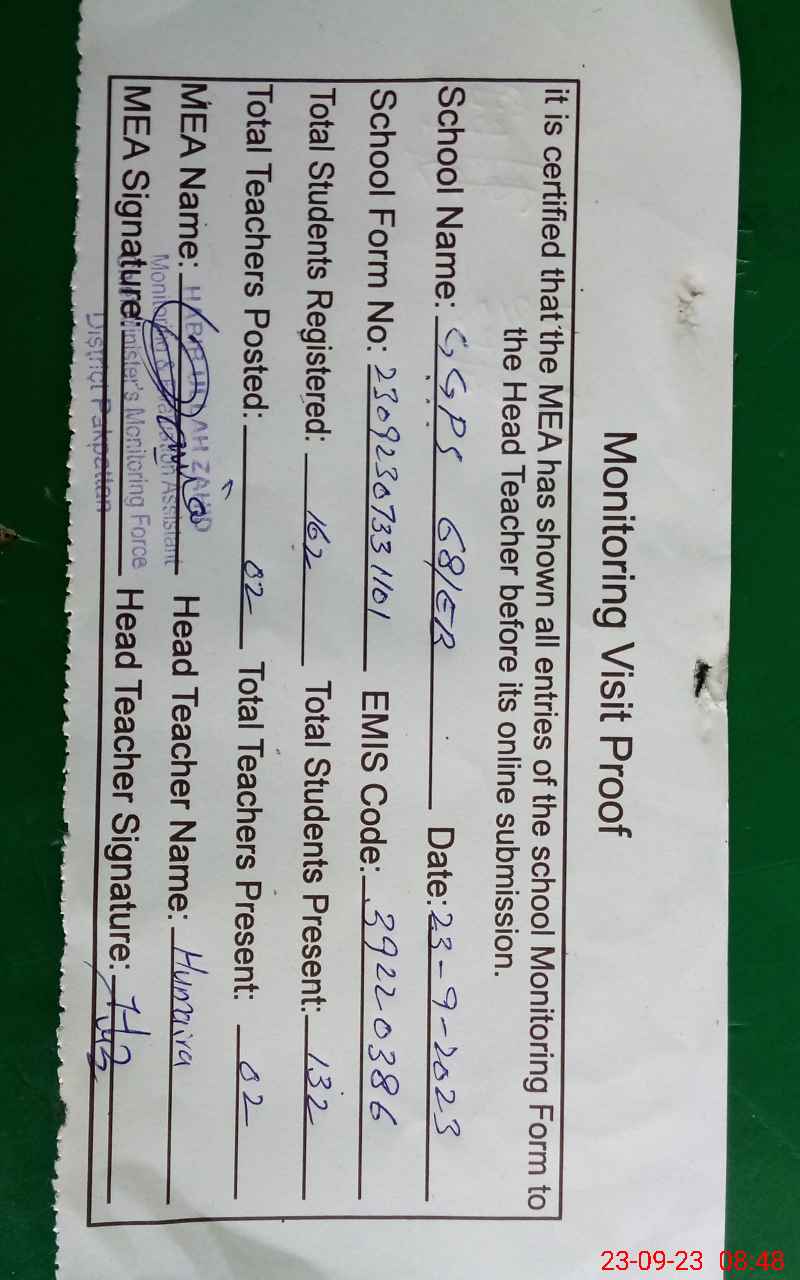 Monitoring Visit Proof
it is certified that the MEA has shown all entries of the school Monitoring Form to
the Head Teacher before its online submission.
School Name: GGPS 68/EB Date: 23-9-2023
School Form No: 2309230733 1101 EMIS Code: 39220386
Total Students Registered: 162 Total Students Present: 132
Total Teachers Posted: 02 Total Teachers Present: 02
MEA Name: HABIB ULLAH ZAHID Head Teacher Name: Humaira
Monitoring & Evaluation Assistant
MEA Signature: Minister's Monitoring Force Head Teacher Signature:
District Pakpattan
23-09-23 08:48